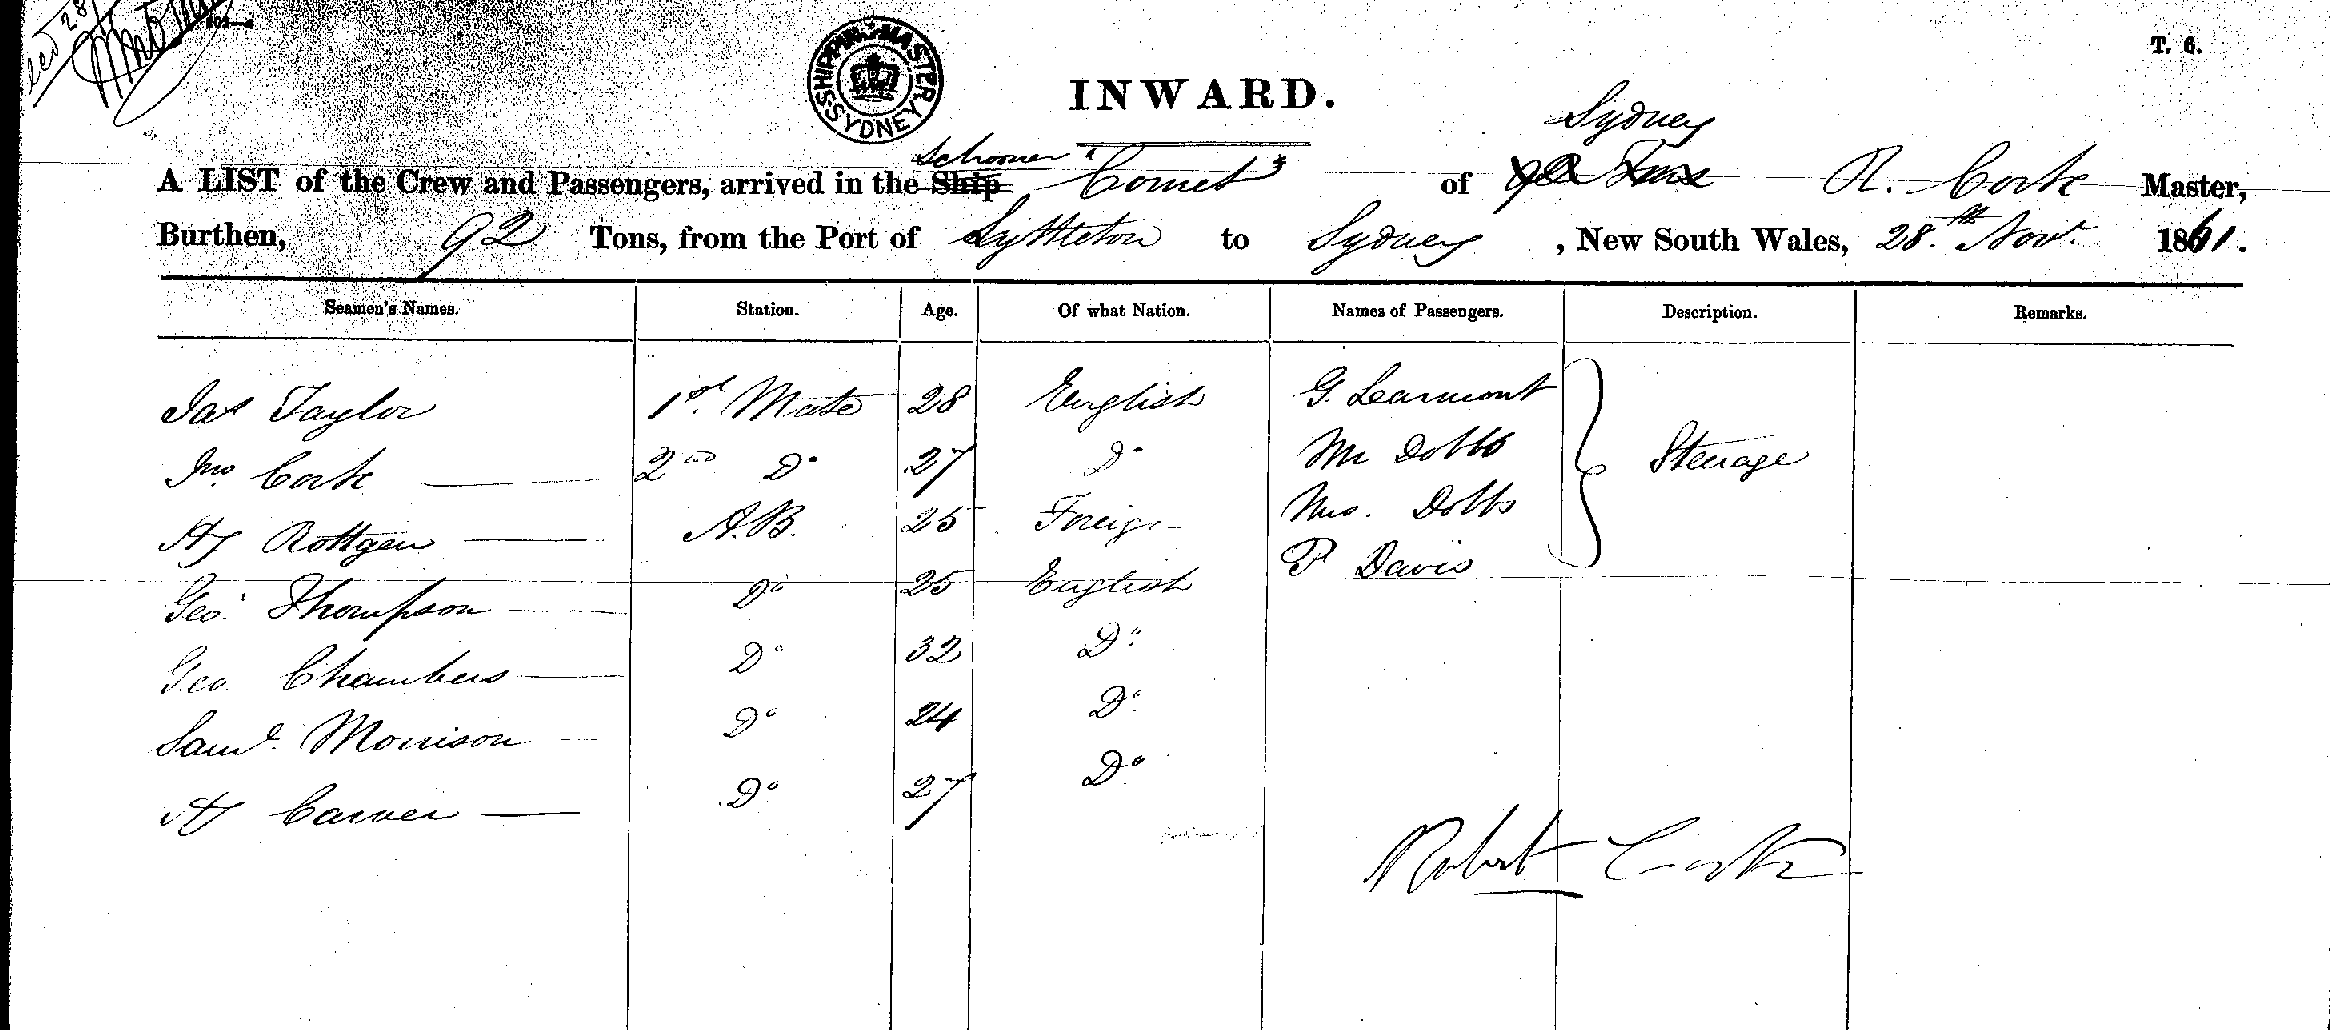 T. 6.
SHIPPING MASTER. SYDNEY
INWARD.
Sydney
Schooner
A LIST of the Crew and Passengers, arrived in the Ship "Comet" of R. Cork Master,
Burthen, 92 Tons, from the Port of Lyttleton to Sydney, New South Wales, 28.th Novr. 1861.
Seamen's Names. Station. Age. Of what Nation. Names of Passengers. Description. Remarks.
Jas Taylor 1st. Mate 28 English G. Learmont
Jno Cork 2nd Do 27 Do Mr Dobbs Steerage
Hy Rottgen A.B. 25 Foreign Mrs. Dobbs
Geo. Thompson Do 25 English P Davis
Geo Chambers Do 32 Do
Saml. Morrison Do 24 Do
Hy Carver Do 27 Do
Robert Cork